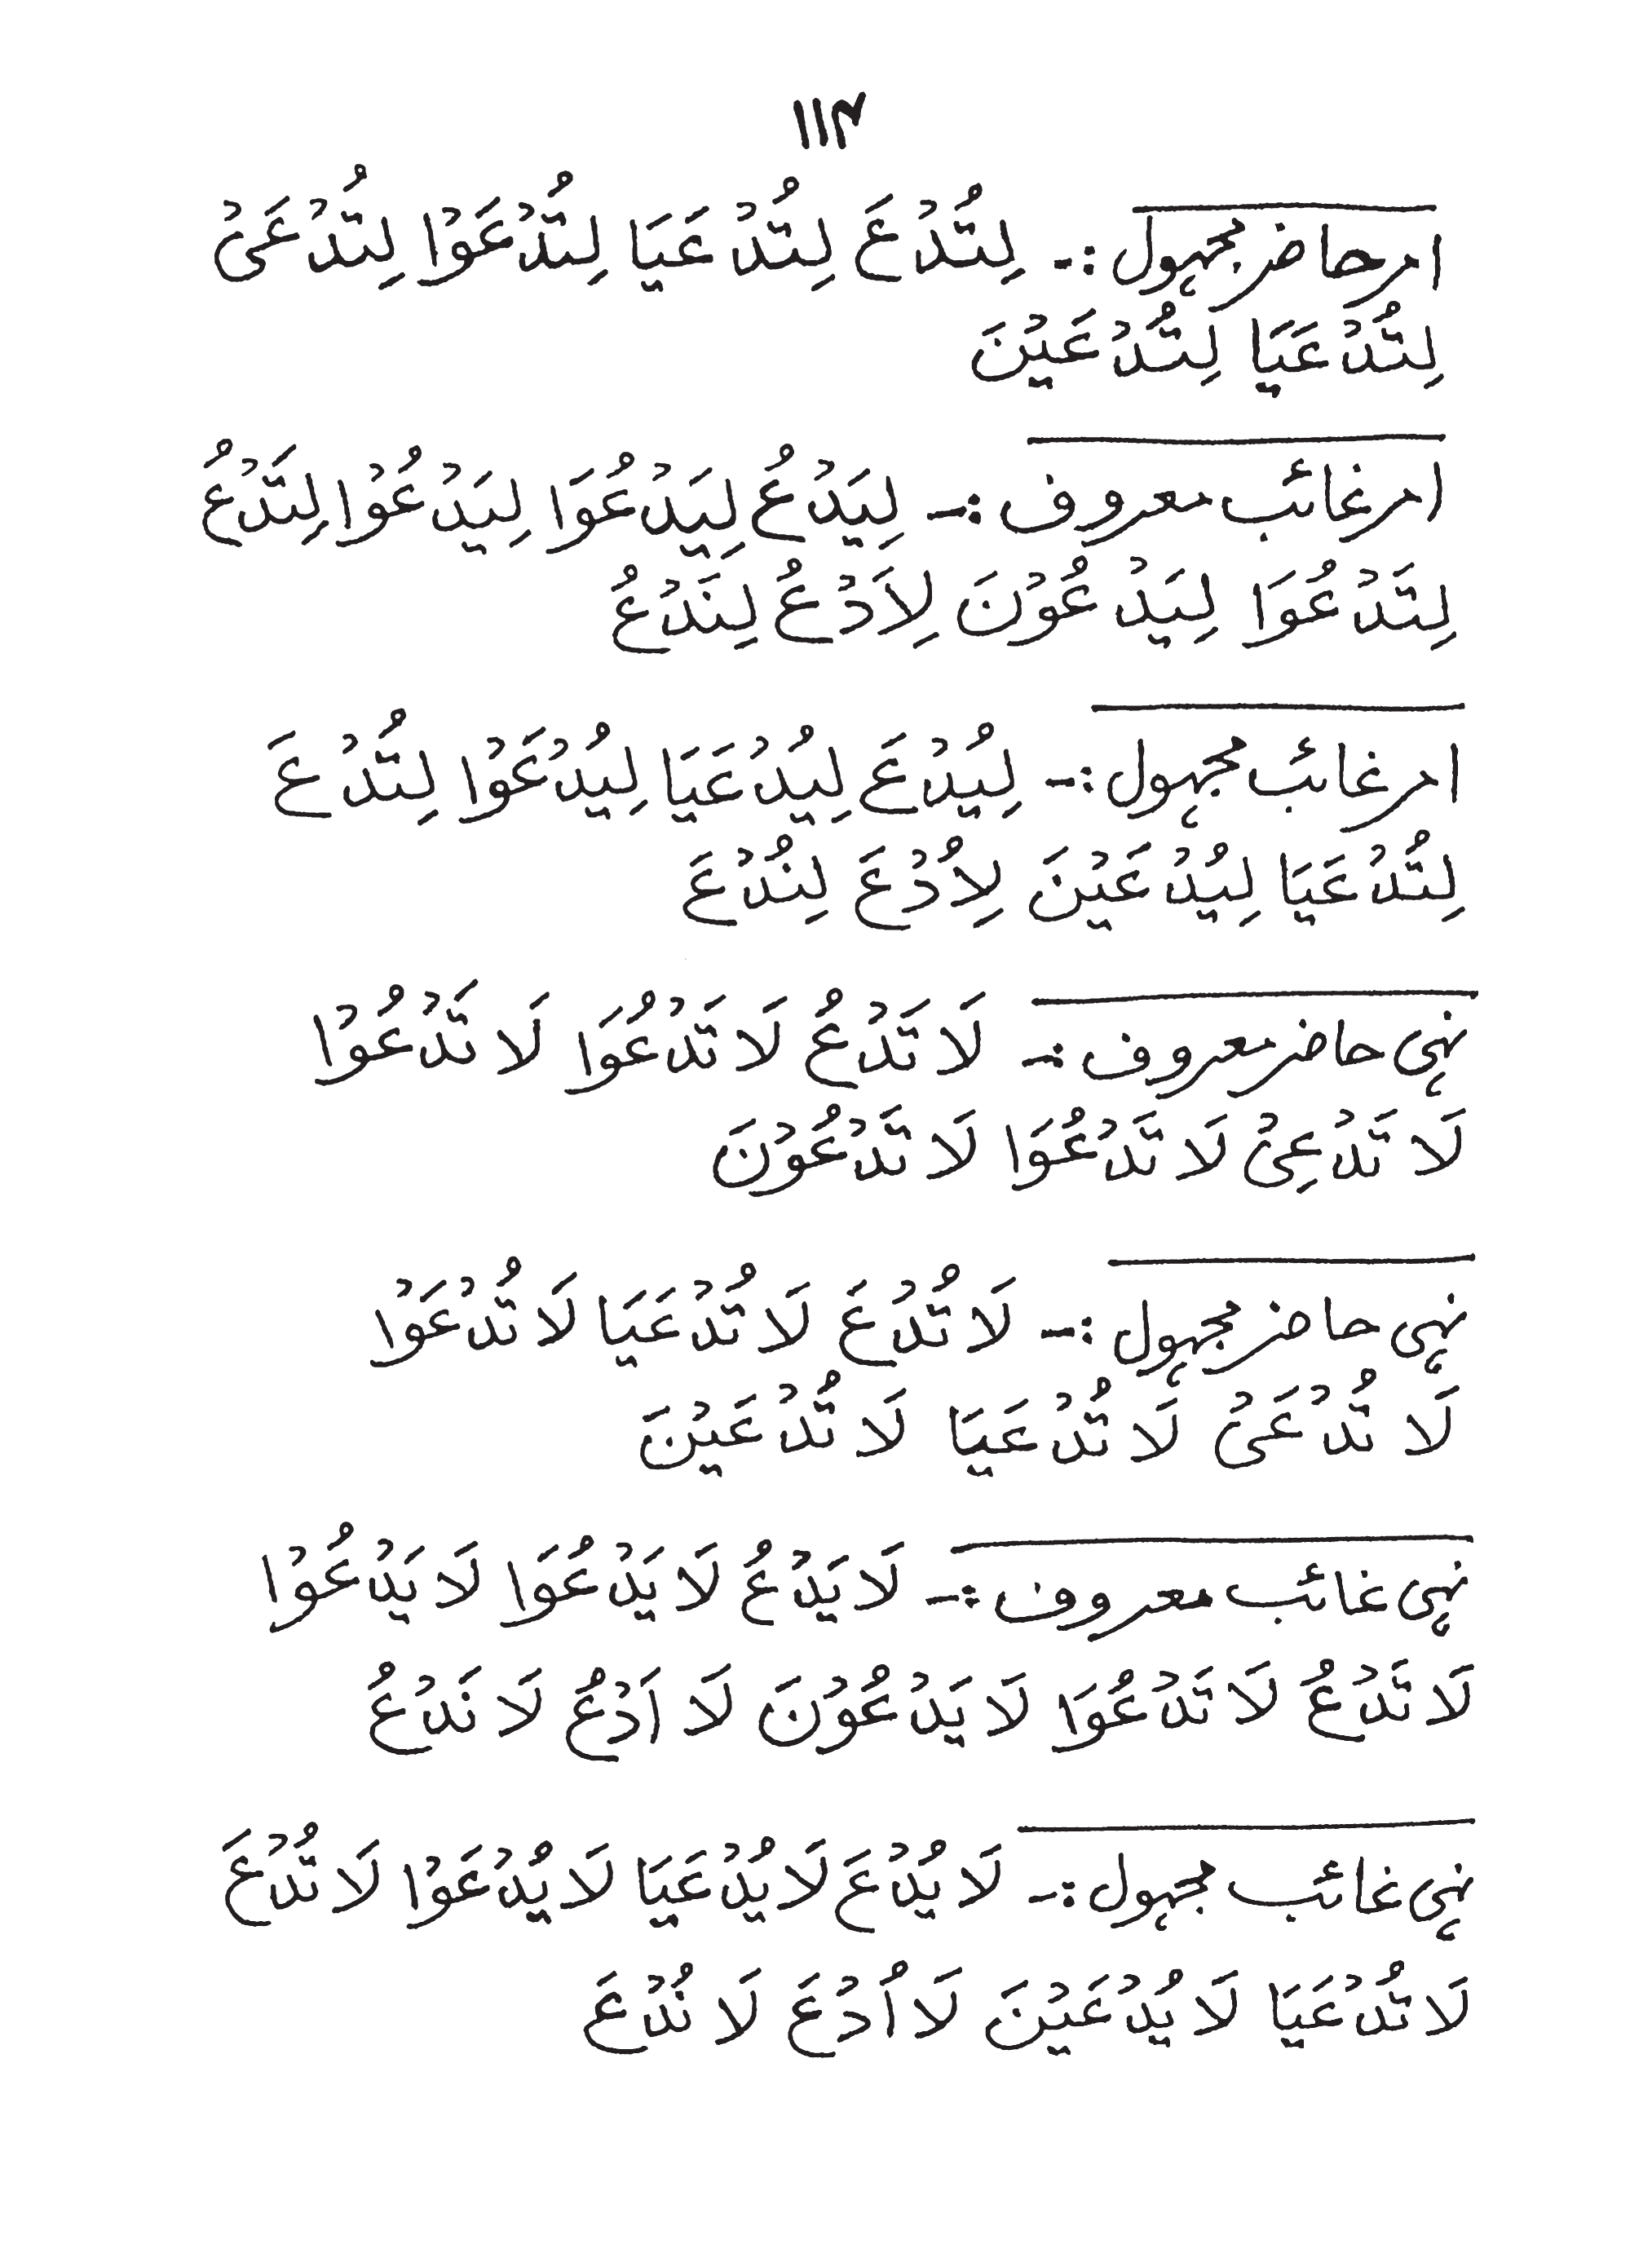 ۱۱۴
امر حاضر مجہول :- لِتُدْعَ لِتُدْعَيَا لِتُدْعَوْا لِتُدْعَىْ
لِتُدْعَيَا لِتُدْعَيْنَ
امر غائب معروف :- لِيَدْعُ لِيَدْعُوَا لِيَدْعُوْا لِتَدْعُ
لِتَدْعُوَا لِيَدْعُوْنَ لِاَدْعُ لِنَدْعُ
امر غائب مجہول :- لِيُدْعَ لِيُدْعَيَا لِيُدْعَوْا لِتُدْعَ
لِتُدْعَيَا لِيُدْعَيْنَ لِاُدْعَ لِنُدْعَ
نہی حاضر معروف :- لَا تَدْعُ لَا تَدْعُوَا لَا تَدْعُوْا
لَا تَدْعِىْ لَا تَدْعُوَا لَا تَدْعُوْنَ
نہی حاضر مجہول :- لَا تُدْعَ لَا تُدْعَيَا لَا تُدْعَوْا
لَا تُدْعَىْ لَا تُدْعَيَا لَا تُدْعَيْنَ
نہی غائب معروف :- لَا يَدْعُ لَا يَدْعُوَا لَا يَدْعُوْا
لَا تَدْعُ لَا تَدْعُوَا لَا يَدْعُوْنَ لَا اَدْعُ لَا نَدْعُ
نہی غائب مجہول :- لَا يُدْعَ لَا يُدْعَيَا لَا يُدْعَوْا لَا تُدْعَ
لَا تُدْعَيَا لَا يُدْعَيْنَ لَا اُدْعَ لَا نُدْعَ